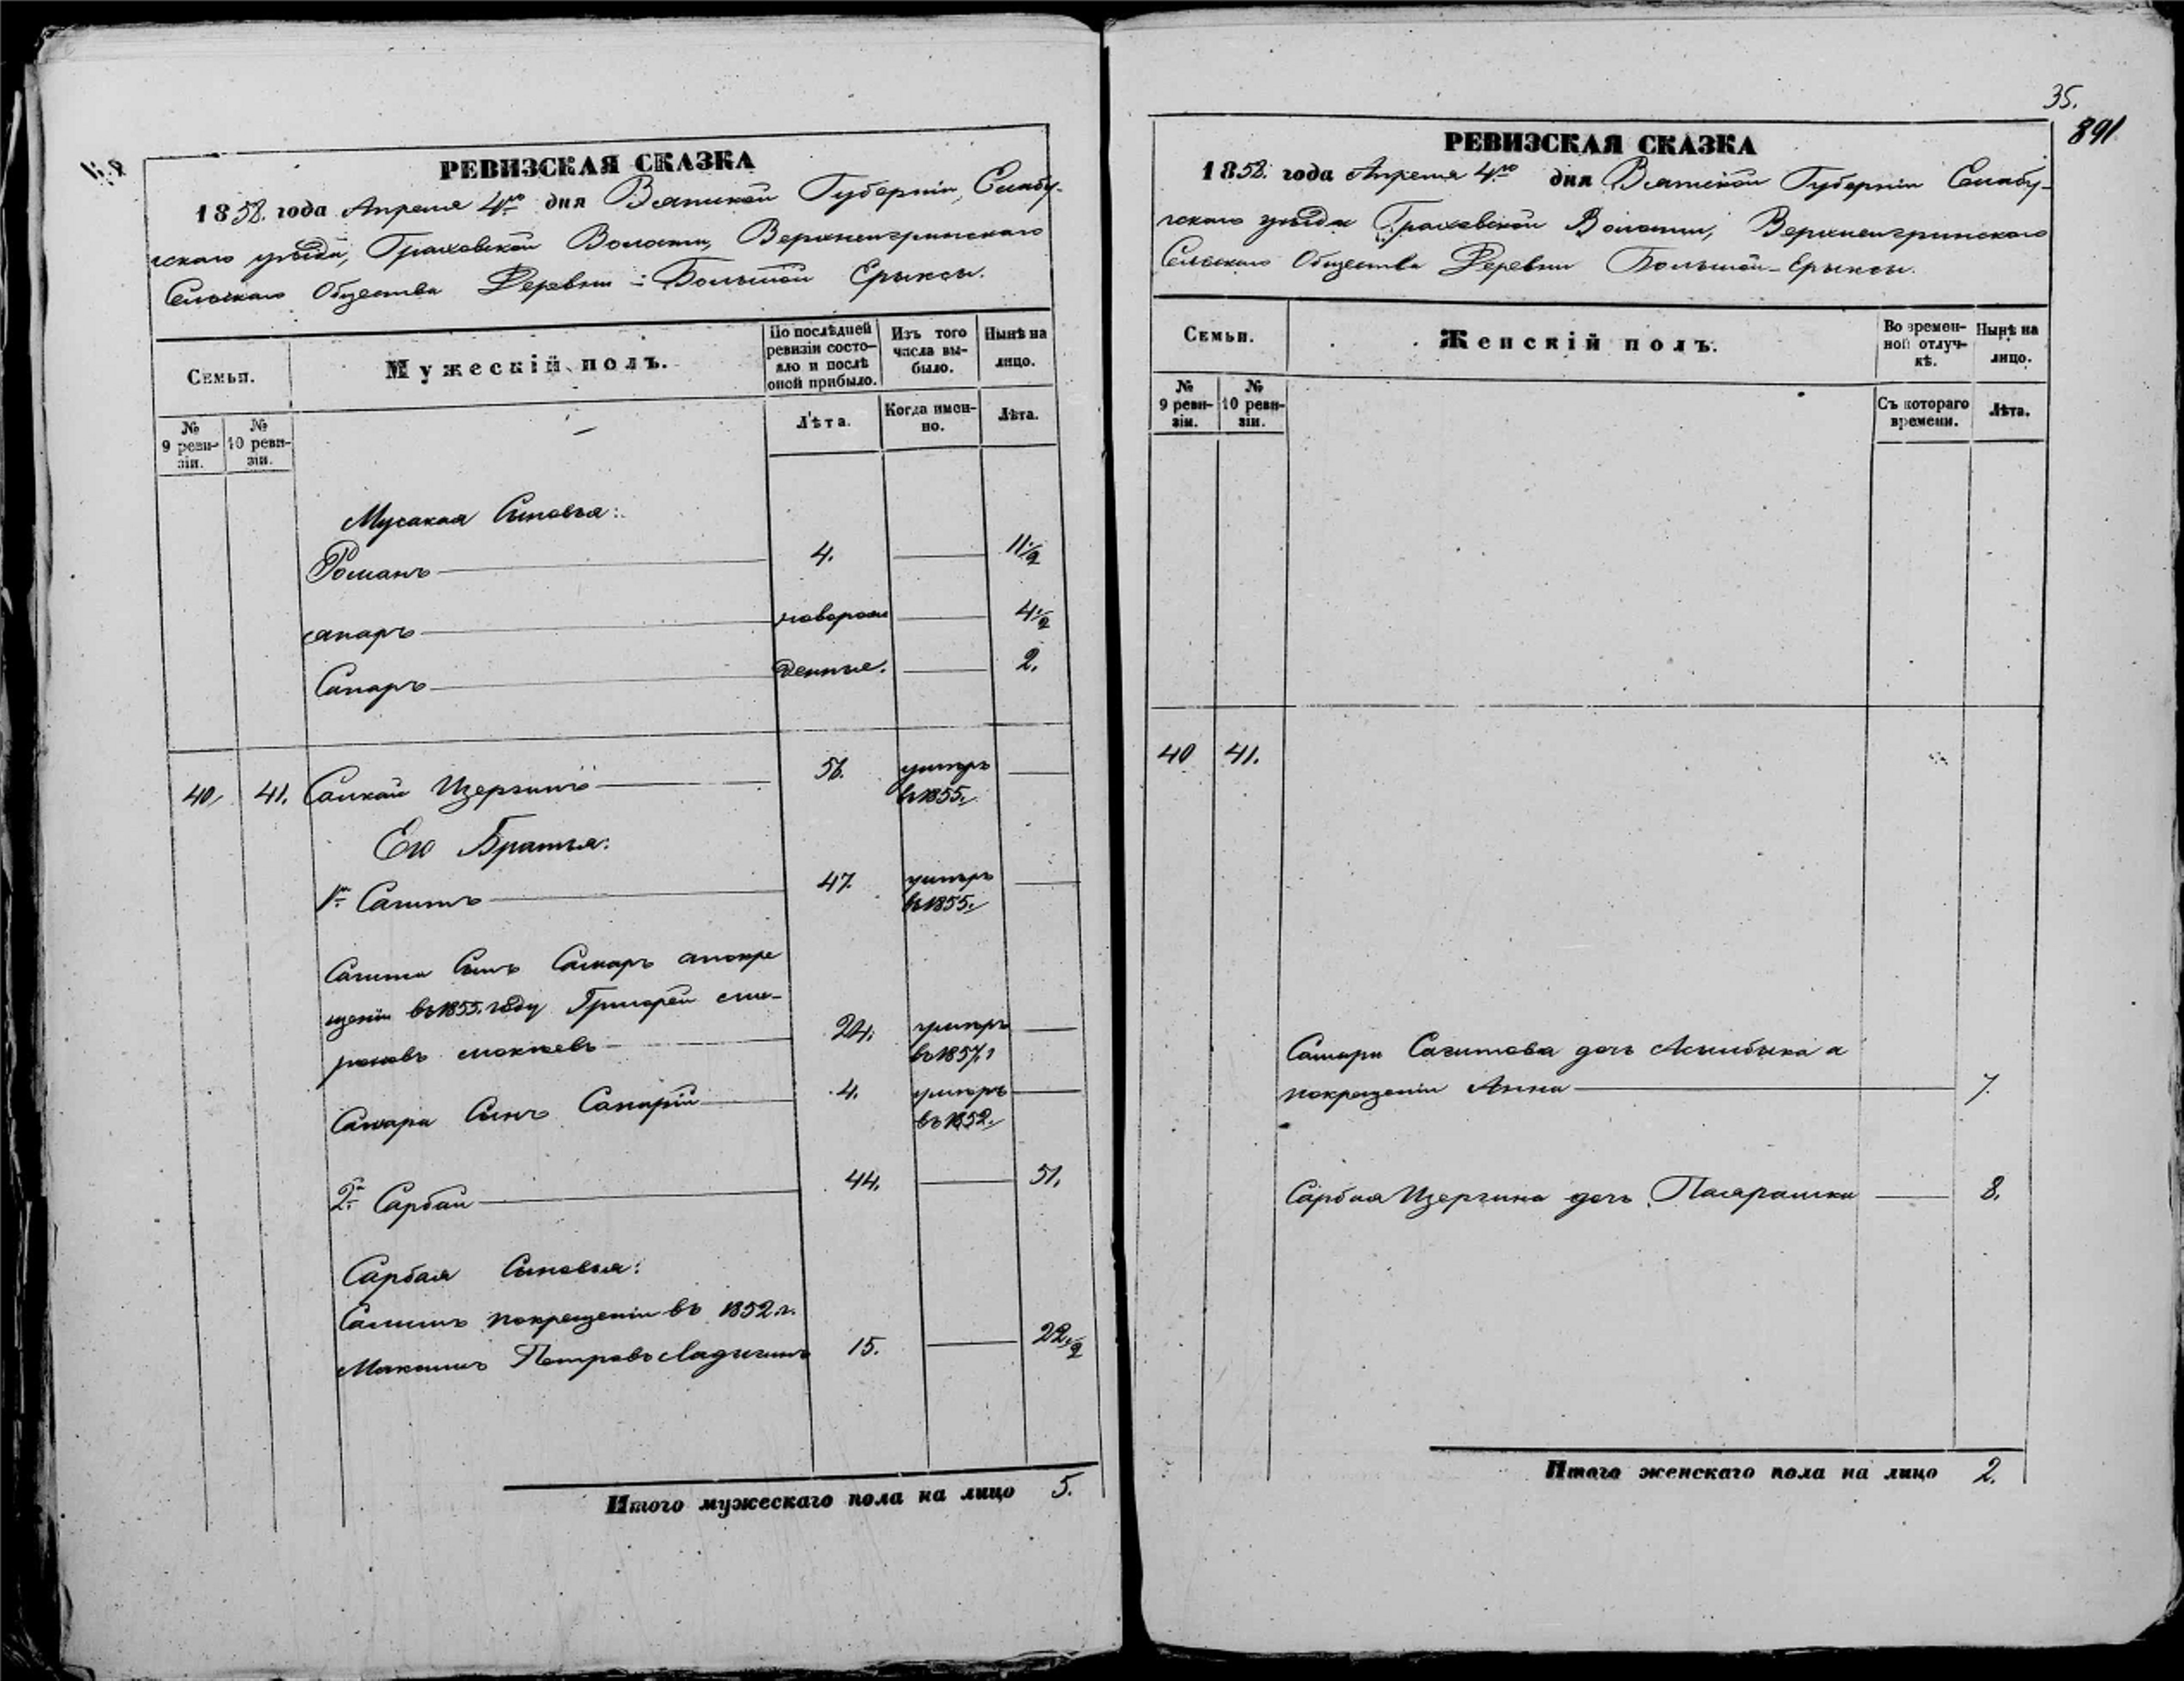 РЕВИЗСКАЯ СКАЗКА
1858. года Апреля 4го дня Вятской Губерніи, Елабу-
гскаго уѣзда, Граховской Волости, Верхнеигринскаго
Сельскаго Общества Деревни Большой Ерыксы.
Семьи.
Мужескій полъ.
По послѣдней ревизіи состо-яло и послѣ оной прибыло.
Изъ того числа вы-было.
Нынѣ на лицо.
№ 9 реви-зіи.
№ 10 реви-зіи.
Лѣта.
Когда имен-но.
Лѣта.
Мусакая Сыновья:
Романъ 4. 11½
новорож 4½
Сапаръ денные. 2.
40. 41. Салкай Изергинъ 56. умеръ
въ 1855.
Его Братья:
1й Сагитъ 47. умеръ
въ 1855.
Сагита Сынъ апокре
щеніи въ 1855. году Григорей
24. умеръ
въ 1857.
Сынъ 4. умеръ
въ 1852.
2й Сарбай 44. 51.
Сарбая Сыновья:
покрещеніи въ 1852. г.
Максимъ Петровъ Ладыгинъ 15. 22½
Итого мужескаго пола на лицо 5.
35.
891
РЕВИЗСКАЯ СКАЗКА
1858. года Апреля 4го дня Вятской Губерніи Елабу-
гскаго уѣзда Граховской Волости, Верхнеигринскаго
Сельскаго Общества Деревни Большой-Ерыксы.
Семьи.
Женскій полъ.
Во времен-ной отлуч-кѣ.
Нынѣ на лицо.
№ 9 реви-зіи.
№ 10 реви-зіи.
Съ котораго времени.
Лѣта.
40 41.
Сагитова дочь а
покрещеніи Анна 7.
Сарбая Изергина дочь 8.
Итого женскаго пола на лицо 2.